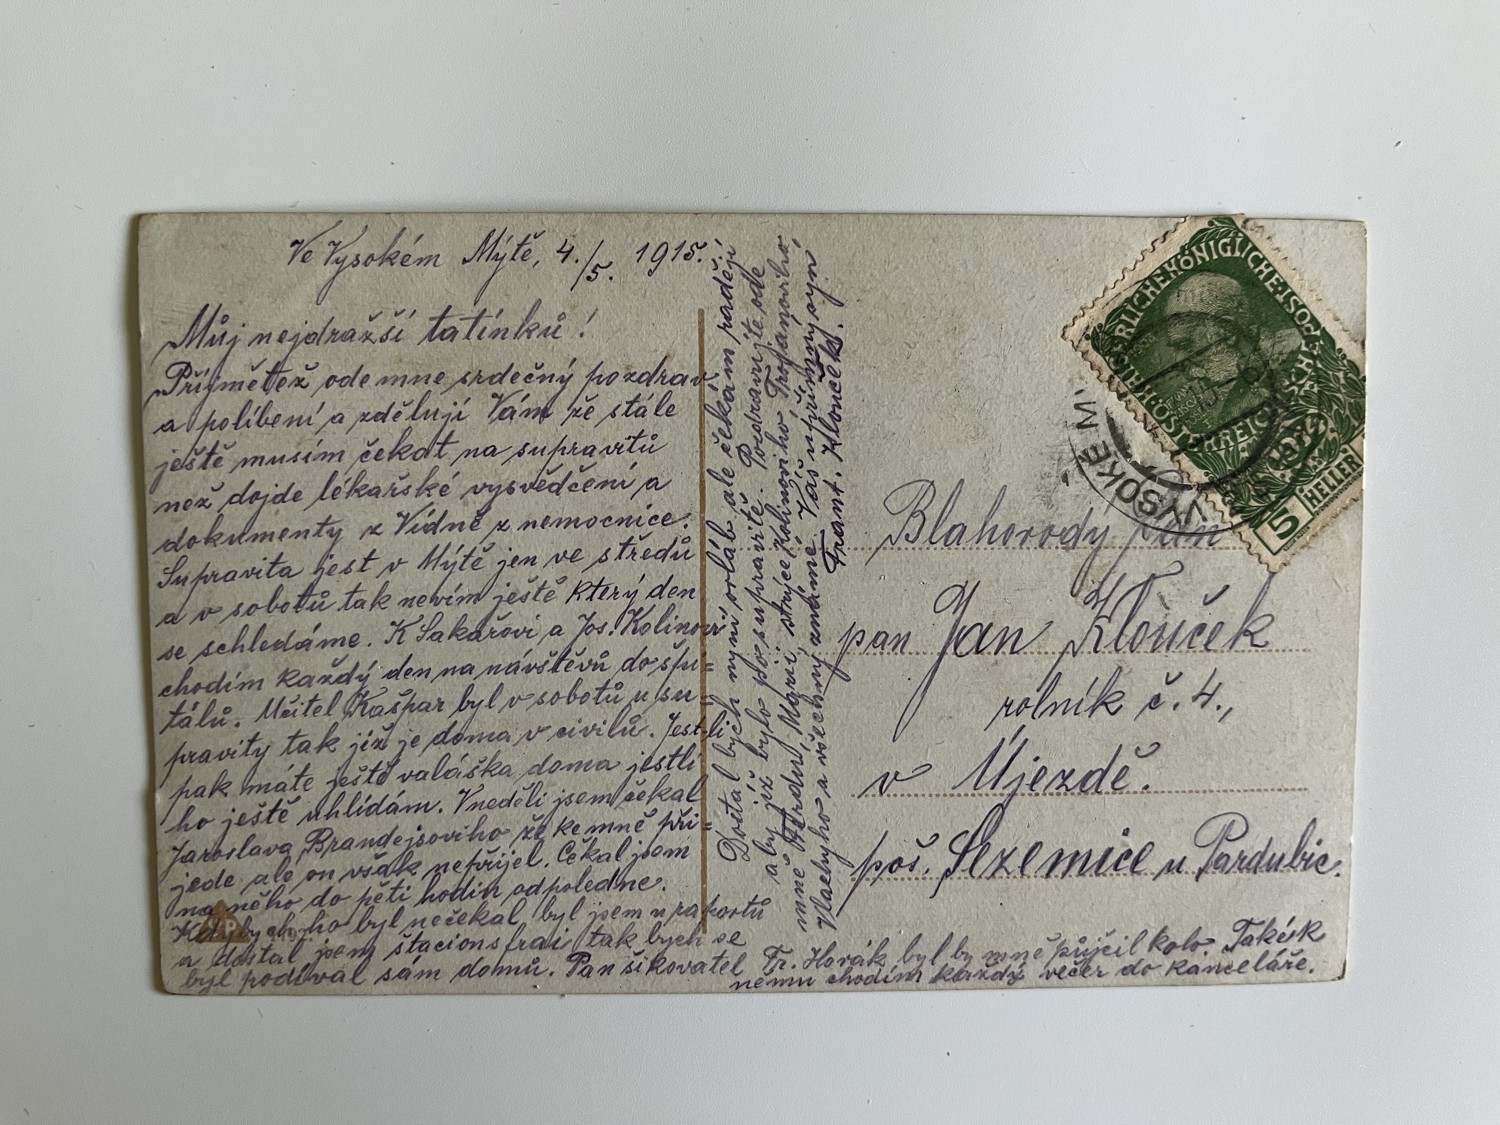 Ve Vysokém Mýtě, 4./5. 1915.
Můj nejdražší tatínků!
Přijmětež odemne srdečný pozdrav
a políbení a zdělují Vám že stále
ještě musím čekat na supravitů
než dojde lékařské vysvědčení a
dokumenty z Vídně z nemocnice.
Supravita jest v Mýtě jen ve středů
a v sobotů tak nevím ještě který den
se schledáme. K Sakařovi a Jos. Kolinovi
chodím každý den na návštěvů do špi=
tálů. Učitel Kašpar byl v sobotů u su=
pravity tak již je doma v civilů. Jestli
pak máte ještě valáška doma jestli
ho ještě uhlídám. V neděli jsem čekal
Jaroslava Brandejsoviho že ke mně při=
jede ale on však nepřijel. Čekal jsem
na něho do pěti hodin odpoledne.
Kdybych ho byl nečekal byl jsem u raportů
a dostal jsem štacionsfrai tak bych se
byl podíval sám domů. Pan šikovatel
Fr. Horák byl by mně půjčil kolo. Také k
němu chodím každý večer do kanceláře.
Dostal bych nyní orláb ale čekám raději
aby již bylo po supravitě. Pozdravujte ode
mně Márii, strýce Kolinoviho Trojanoviho,
Vlachyho a všechny známé. Váš upřímný syn
Frant. Klouček.
Blahorodý pan
pan Jan Klouček
rolník č. 4.,
v Újezdě.
poš. Sezemice u Pardubic.
KAISERLICHE KÖNIGLICHE
ÖSTERREICHISCHE POST
5 HELLER
VYSOKÉ M